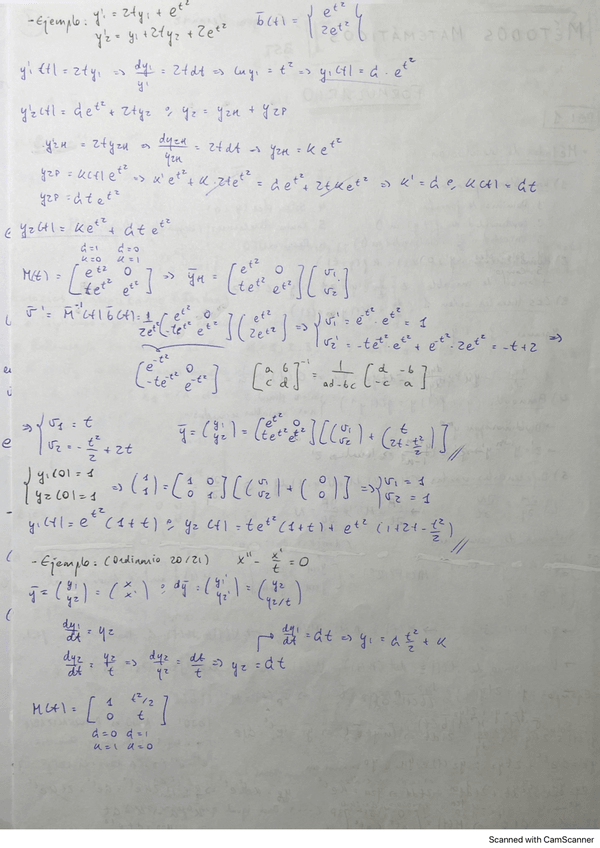 - Ejemplo: y'₁ = 2ty₁ + e^{t²}
y'₂ = y₁ + 2ty₂ + 2e^{t²}
b̄(t) = { e^{t²}
2e^{t²} {
y'₁(t) = 2ty₁ => dy₁/y₁ = 2tdt => ln y₁ = t² => y₁(t) = C₁ · e^{t²}
y'₂(t) = C₁e^{t²} + 2ty₂ ; y₂ = y₂H + y₂P
y'₂H = 2ty₂H => dy₂H/y₂H = 2tdt -> y₂H = Ke^{t²}
y₂P = K(t)e^{t²} => K'e^{t²} + K·2te^{t²} = C₁e^{t²} + 2tKe^{t²} => K' = C₁ ; K(t) = C₁t
y₂P = C₁te^{t²}
y₂(t) = Ke^{t²} + C₁te^{t²}
C₁=1 C₁=0
K=0 K=1
M(t) = [ e^{t²} 0 ; te^{t²} e^{t²} ] => ȳH = [ e^{t²} 0 ; te^{t²} e^{t²} ] [ v₁ ; v₂ ]
v̄' = M̄⁻¹(t) b̄(t) = 1/2e^{t²} [ e^{t²} 0 ; -te^{t²} e^{t²} ] ( e^{t²} ; 2e^{t²} ) => { v₁' = e^{-t²} · e^{t²} = 1 ; v₂' = -te^{-t²} · e^{t²} + e^{-t²} · 2e^{t²} = -t+2 =>
[ e^{-t²} 0 ; -te^{-t²} e^{-t²} ] [ a b ; c d ]⁻¹ = 1/(ad-bc) [ d -b ; -c a ]
=> { v₁ = t ; v₂ = -t²/2 + 2t ȳ = ( y₁ ; y₂ ) = [ e^{t²} 0 ; te^{t²} e^{t²} ] [ ( v₁ ; v₂ ) + ( t ; 2t - t²/2 ) ] //
{ y₁(0) = 1 ; y₂(0) = 1 => ( 1 ; 1 ) = [ 1 0 ; 0 1 ] [ ( v₁ ; v₂ ) + ( 0 ; 0 ) ] => { v₁ = 1 ; v₂ = 1
y₁(t) = e^{t²} (1+t) ; y₂(t) = te^{t²} (1+t) + e^{t²} (1+2t - t²/2) //
- Ejemplo: (Ordinario 20/21) x'' - x'/t = 0
ȳ = ( y₁ ; y₂ ) = ( x ; x' ) ; dȳ = ( y₁' ; y₂' ) = ( y₂ ; y₂/t )
dy₁/dt = y₂
dy₁/dt = C₁t => y₁ = C₁ t²/2 + K
dy₂/dt = y₂/t => dy₂/y₂ = dt/t => y₂ = C₁t
M(t) = [ 1 t²/2 ; 0 t ]
C₁=0 C₁=1
K=1 K=0
Scanned with CamScanner